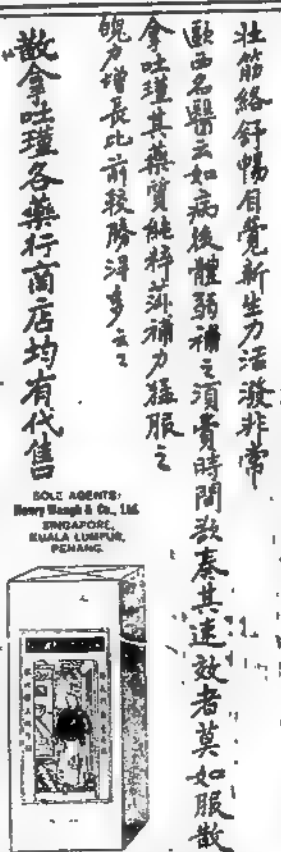 壯筋絡舒暢自覺新生力活潑非常
歐西名醫云如病後體弱補之須費時間欲奏其速效者莫如服散
拿吐瑾其藥質純粹滋補力猛服之
魄力增長比前較勝得多云云
散拿吐瑾各藥行商店均有代售
SOLE AGENTS:
Henry Waugh & Co., Ltd.
SINGAPORE,
KUALA LUMPUR,
PENANG.